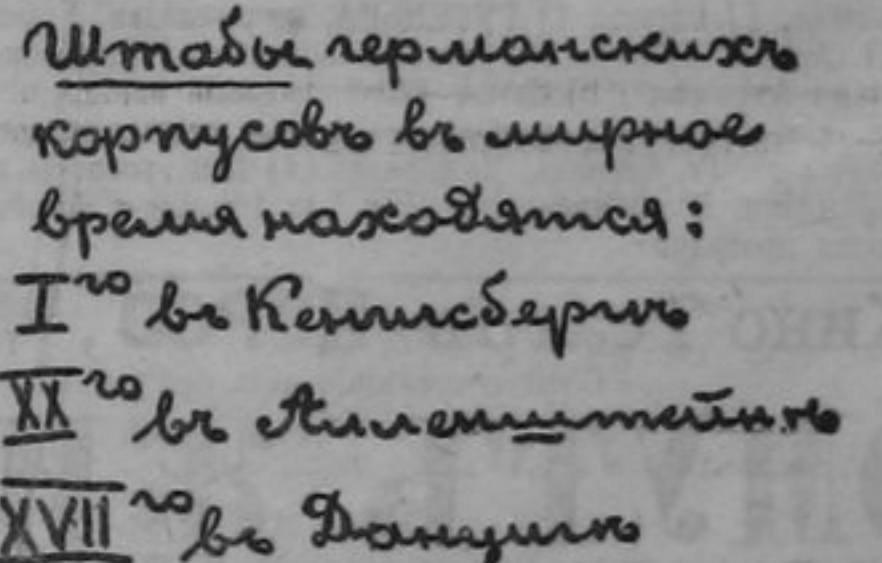 Штабы германскихъ
корпусовъ въ мирное
время находятся:
I го въ Кенигсбергѣ
XX го въ Алленштейнѣ
XVII го въ Данцигѣ